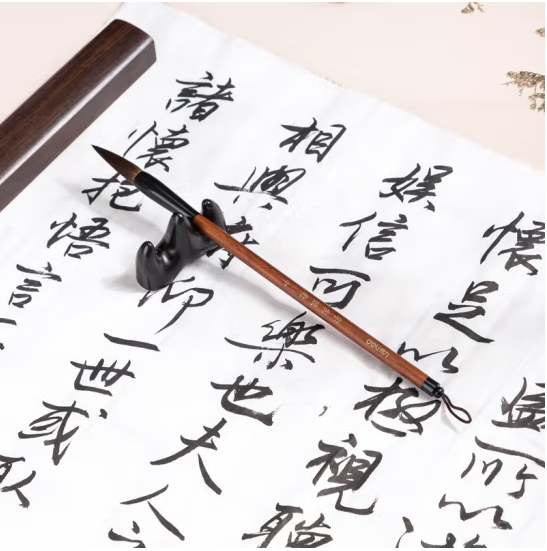 盛所以
懷足以極視聽
娛信可樂也夫人
相與仰一世或取
諸懷抱悟言